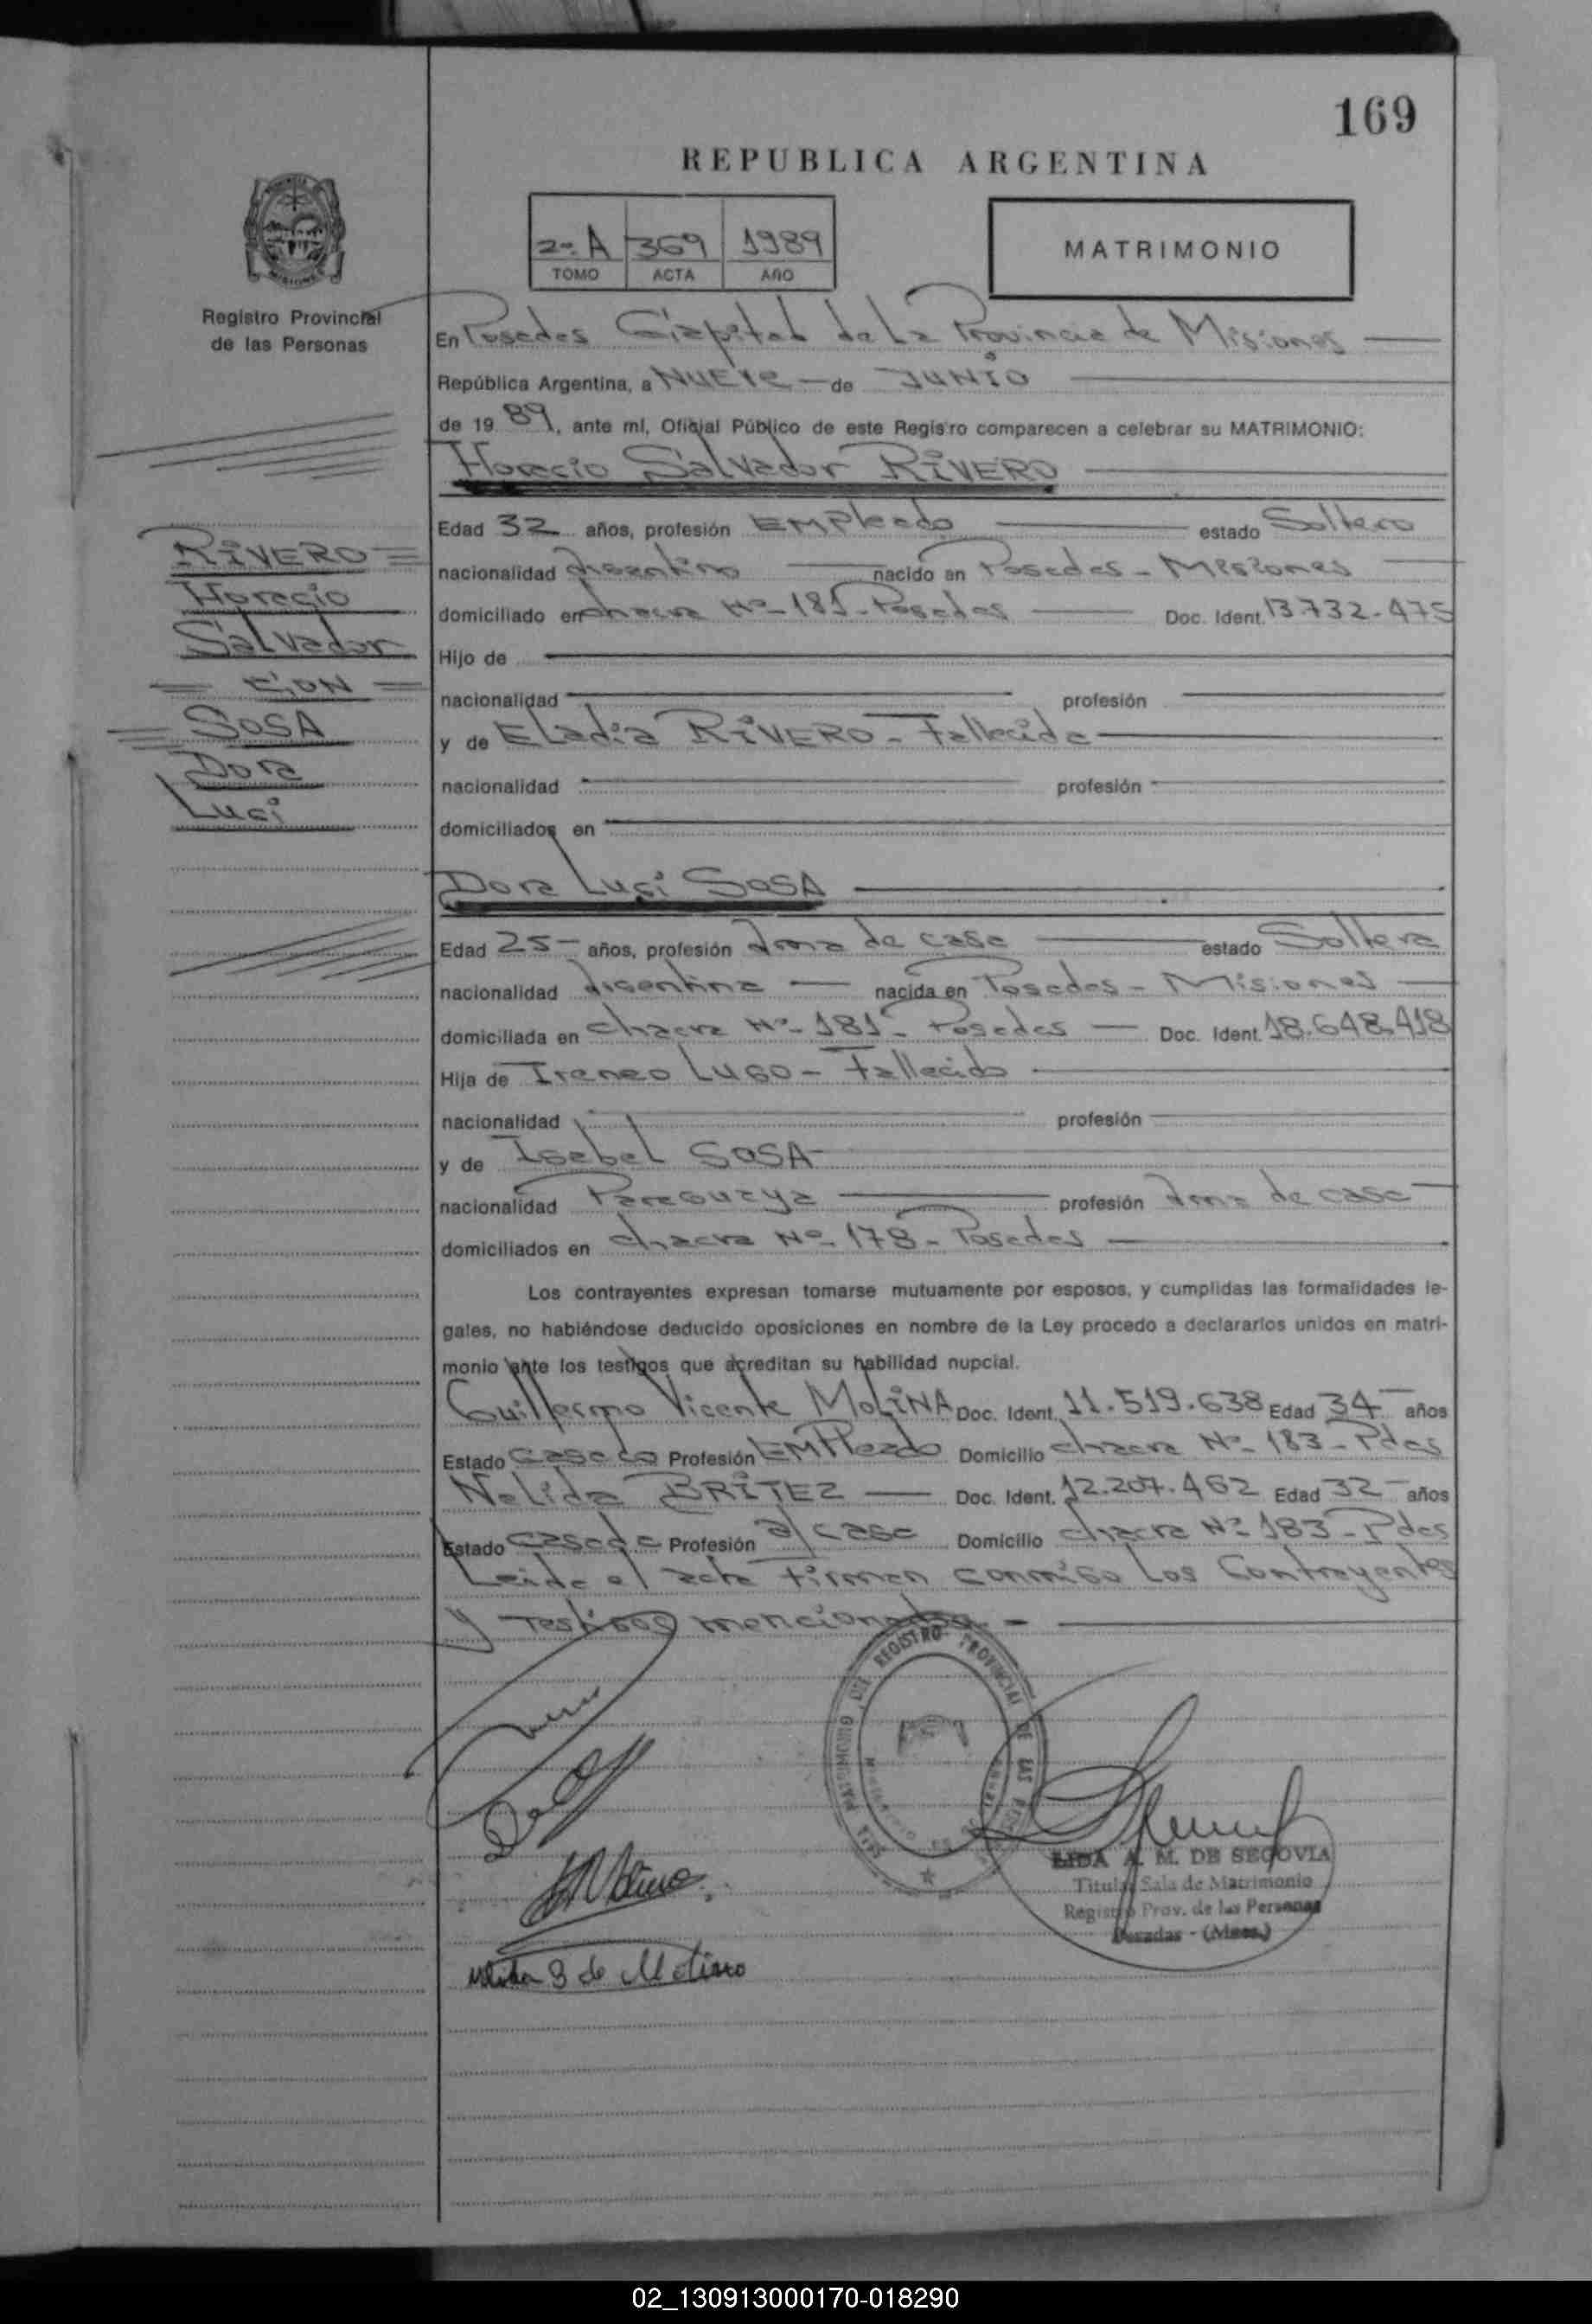 169
REPUBLICA ARGENTINA
2º A 369 1989
TOMO ACTA AÑO
MATRIMONIO
Registro Provincial
de las Personas
En Posadas Capital de La Provincia de Misiones
República Argentina, a NUEVE de JUNIO
de 19 89, ante mí, Oficial Público de este Registro comparecen a celebrar su MATRIMONIO:
Horacio Salvador RIVERO
Edad 32 años, profesión EMPleado estado Soltero
nacionalidad Argentino nacido en Posadas - Misiones
domiciliado en chacra Nº 181 - Posadas Doc. Ident. 13.732.475
Hijo de
nacionalidad profesión
y de Eladia RIVERO - Fallecida
nacionalidad profesión
domiciliados en
RIVERO
Horacio
Salvador
CON
SOSA
Dora
Luci
Dora Luci SOSA
Edad 25 años, profesión Ama de casa estado Soltera
nacionalidad Argentina nacida en Posadas - Misiones
domiciliada en chacra Nº 181 - Posadas Doc. Ident. 18.648.418
Hija de Ireneo LUGO - Fallecido
nacionalidad profesión
y de Isabel SOSA
nacionalidad Paraguaya profesión Ama de casa
domiciliados en chacra Nº 178 - Posadas
Los contrayentes expresan tomarse mutuamente por esposos, y cumplidas las formalidades le-
gales, no habiéndose deducido oposiciones en nombre de la Ley procedo a declararlos unidos en matri-
monio ante los testigos que acreditan su habilidad nupcial.
Guillermo Vicente MOLINA Doc. Ident. 11.519.638 Edad 34 años
Estado Casado Profesión EMPleado Domicilio chacra Nº 183 - Pdas
Nelida BRITEZ Doc. Ident. 12.207.462 Edad 32 años
Estado Casada Profesión a/casa Domicilio chacra Nº 183 - Pdas
Leida el acta firman conmigo Los Contrayentes
y testigos mencionados. -
REGISTRO PROVINCIAL DE LAS
LIDA A. M. DE SEGOVIA
Titular Sala de Matrimonio
Registro Prov. de las Personas
Posadas - (Mnes.)
de Molina
02_130913000170-018290